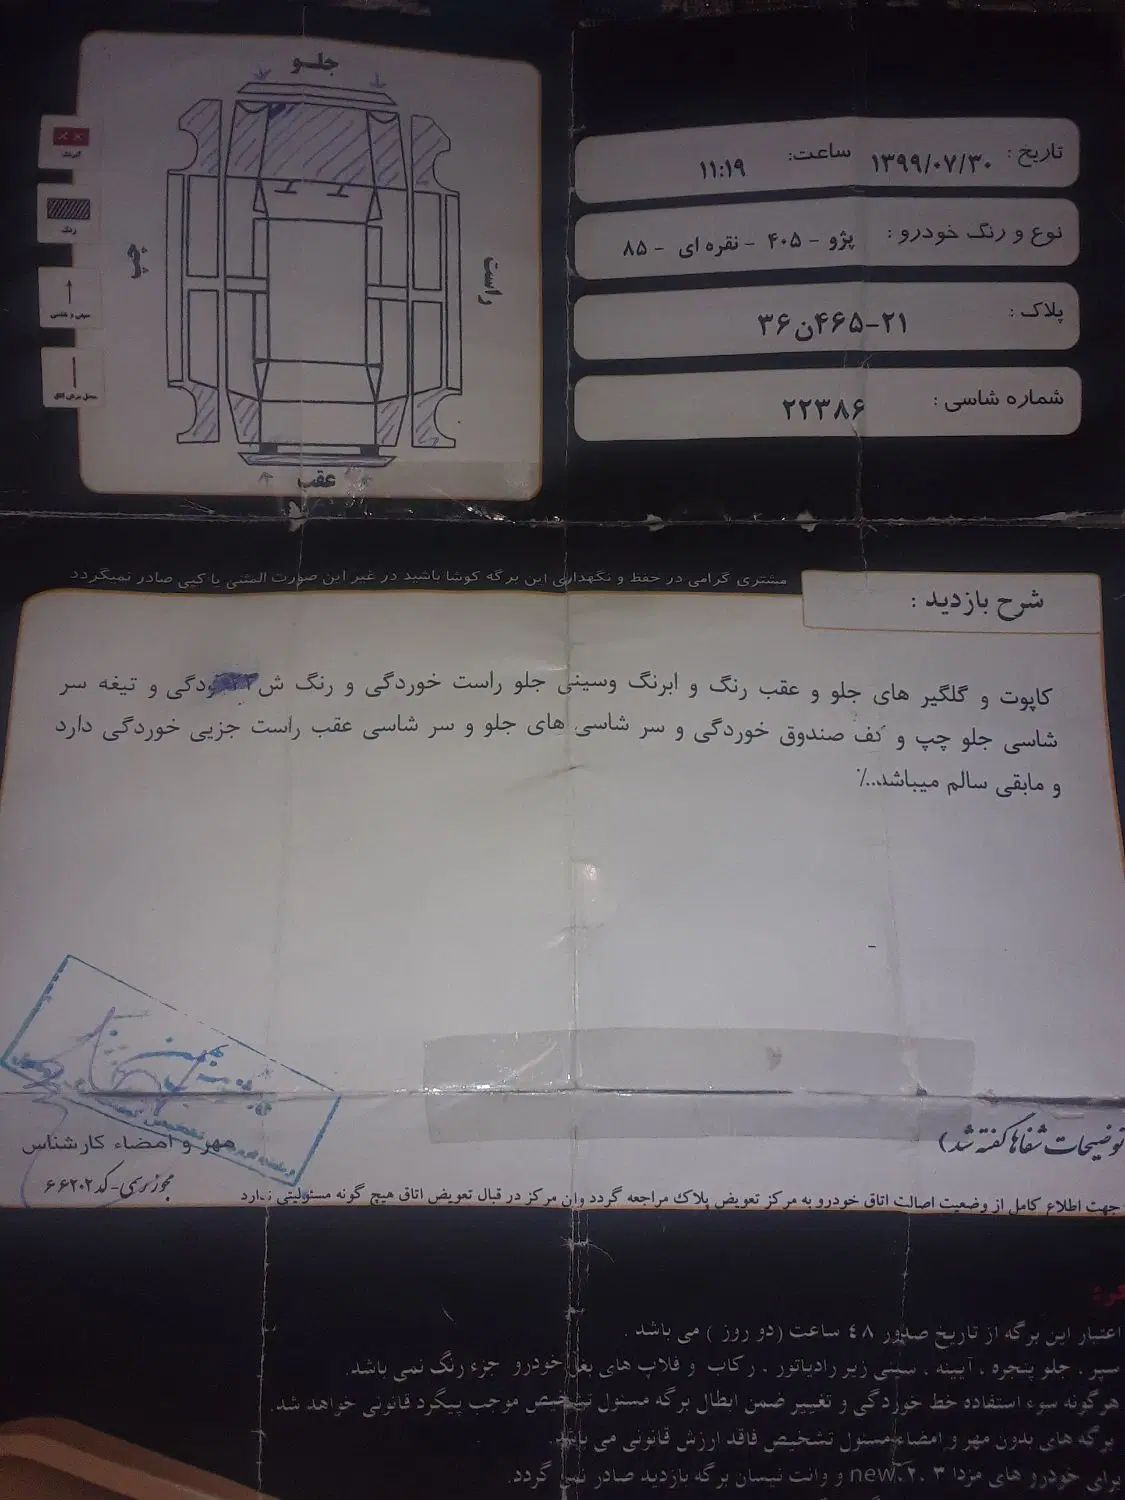 جلو
راست
عقب
رنگ
محل برش اتاق
تاریخ : ۱۳۹۹/۰۷/۳۰ ساعت: ۱۱:۱۹
نوع و رنگ خودرو : پژو - ۴۰۵ - نقره ای - ۸۵
پلاک : ۲۱-۴۶۵ن۳۶
شماره شاسی : ۲۲۳۸۶
مشتری گرامی در حفظ و نگهداری این برگه کوشا باشید در غیر این صورت المثنی یا کپی صادر نمیگردد
شرح بازدید :
کاپوت و گلگیر های جلو و عقب رنگ و ابرنگ وسینی جلو راست خوردگی و رنگ و تیغه سر
شاسی جلو چپ و کف صندوق خوردگی و سر شاسی های جلو و سر شاسی عقب راست جزیی خوردگی دارد
و مابقی سالم میباشد..٪
توضیحات شفاها گفته شد)
مهر و امضاء کارشناس
کد ۶۶۲۰۲
جهت اطلاع کامل از وضعیت اصالت اتاق خودرو به مرکز تعویض پلاک مراجعه گردد واین مرکز در قبال تعویض اتاق هیچ گونه مسئولیتی ندارد
اعتبار این برگه از تاریخ صدور ٤٨ ساعت (دو روز ) می باشد .
سپر . جلو پنجره . آیینه . سینی زیر رادیاتور . رکاب و فلاپ های بغل خودرو جزء رنگ نمی باشد.
هرگونه سوء استفاده خط خوردگی و تغییر ضمن ابطال برگه مسئول تشخیص موجب پیگرد قانونی خواهد شد.
برگه های بدون مهر و امضاء مسئول تشخیص فاقد ارزش قانونی می باشد.
برای خودرو های مزدا ۳ .۲ .new و وانت نیسان برگه بازدید صادر نمی گردد.